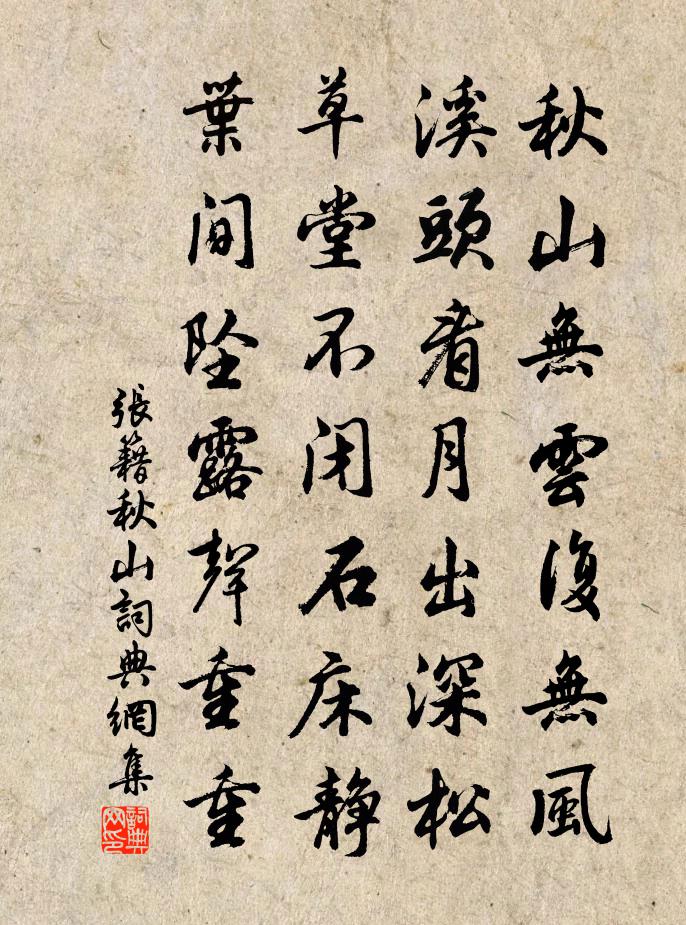 秋山無雲復無風
溪頭看月出深松
草堂不閉石床静
葉間墜露聲重重
張籍秋山詞典網集
詞典网印